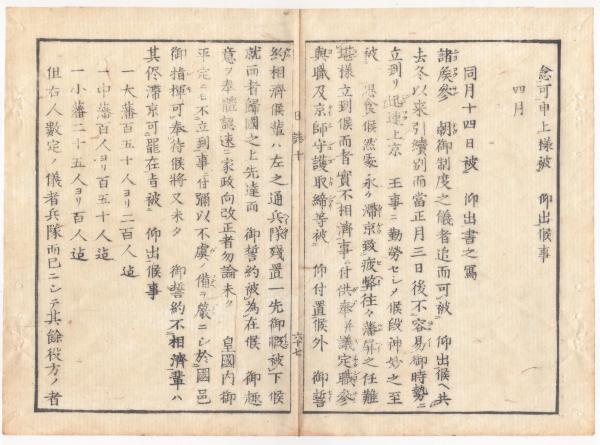 念可申上様被　仰出候事
四月
同月十四日被　仰出書之写
諸矦参　朝御制度之儀者追而可被　仰出候ヘ共
去冬以来引續別而當正月三日後不容易御時勢ニ
立到リ迅速上京　王事ニ勤勞セシメ候段神妙之至
被　思食候然處永々滞京致疲弊往々藩屏之任難
堪様立到候而者實不相濟事ニ付供奉并議定職参
與職及京師守護取締等被　仰付置候外　御誓
日誌十
六十七
約相濟候輩ハ左之通兵隊残置一先御暇被下候
就而者歸國之上先達而　御誓約被為在候　御趣
意ヲ奉體認速ニ家政向改正者勿論未タ　皇國内御
平定ニモ不立到事ニ付彌以不虞ノ備ヲ嚴ニシ於國邑
御指揮可奉待候將又未タ　御誓約不相濟輩ハ
其侭滞京可罷在旨被　仰出候事
一大藩百五十人ヨリ二百人迠
一中藩百人ヨリ百五十人迠
一小藩二十五人ヨリ百人迠
但右人數定ノ儀者兵隊而已ニシテ其餘役方ノ者